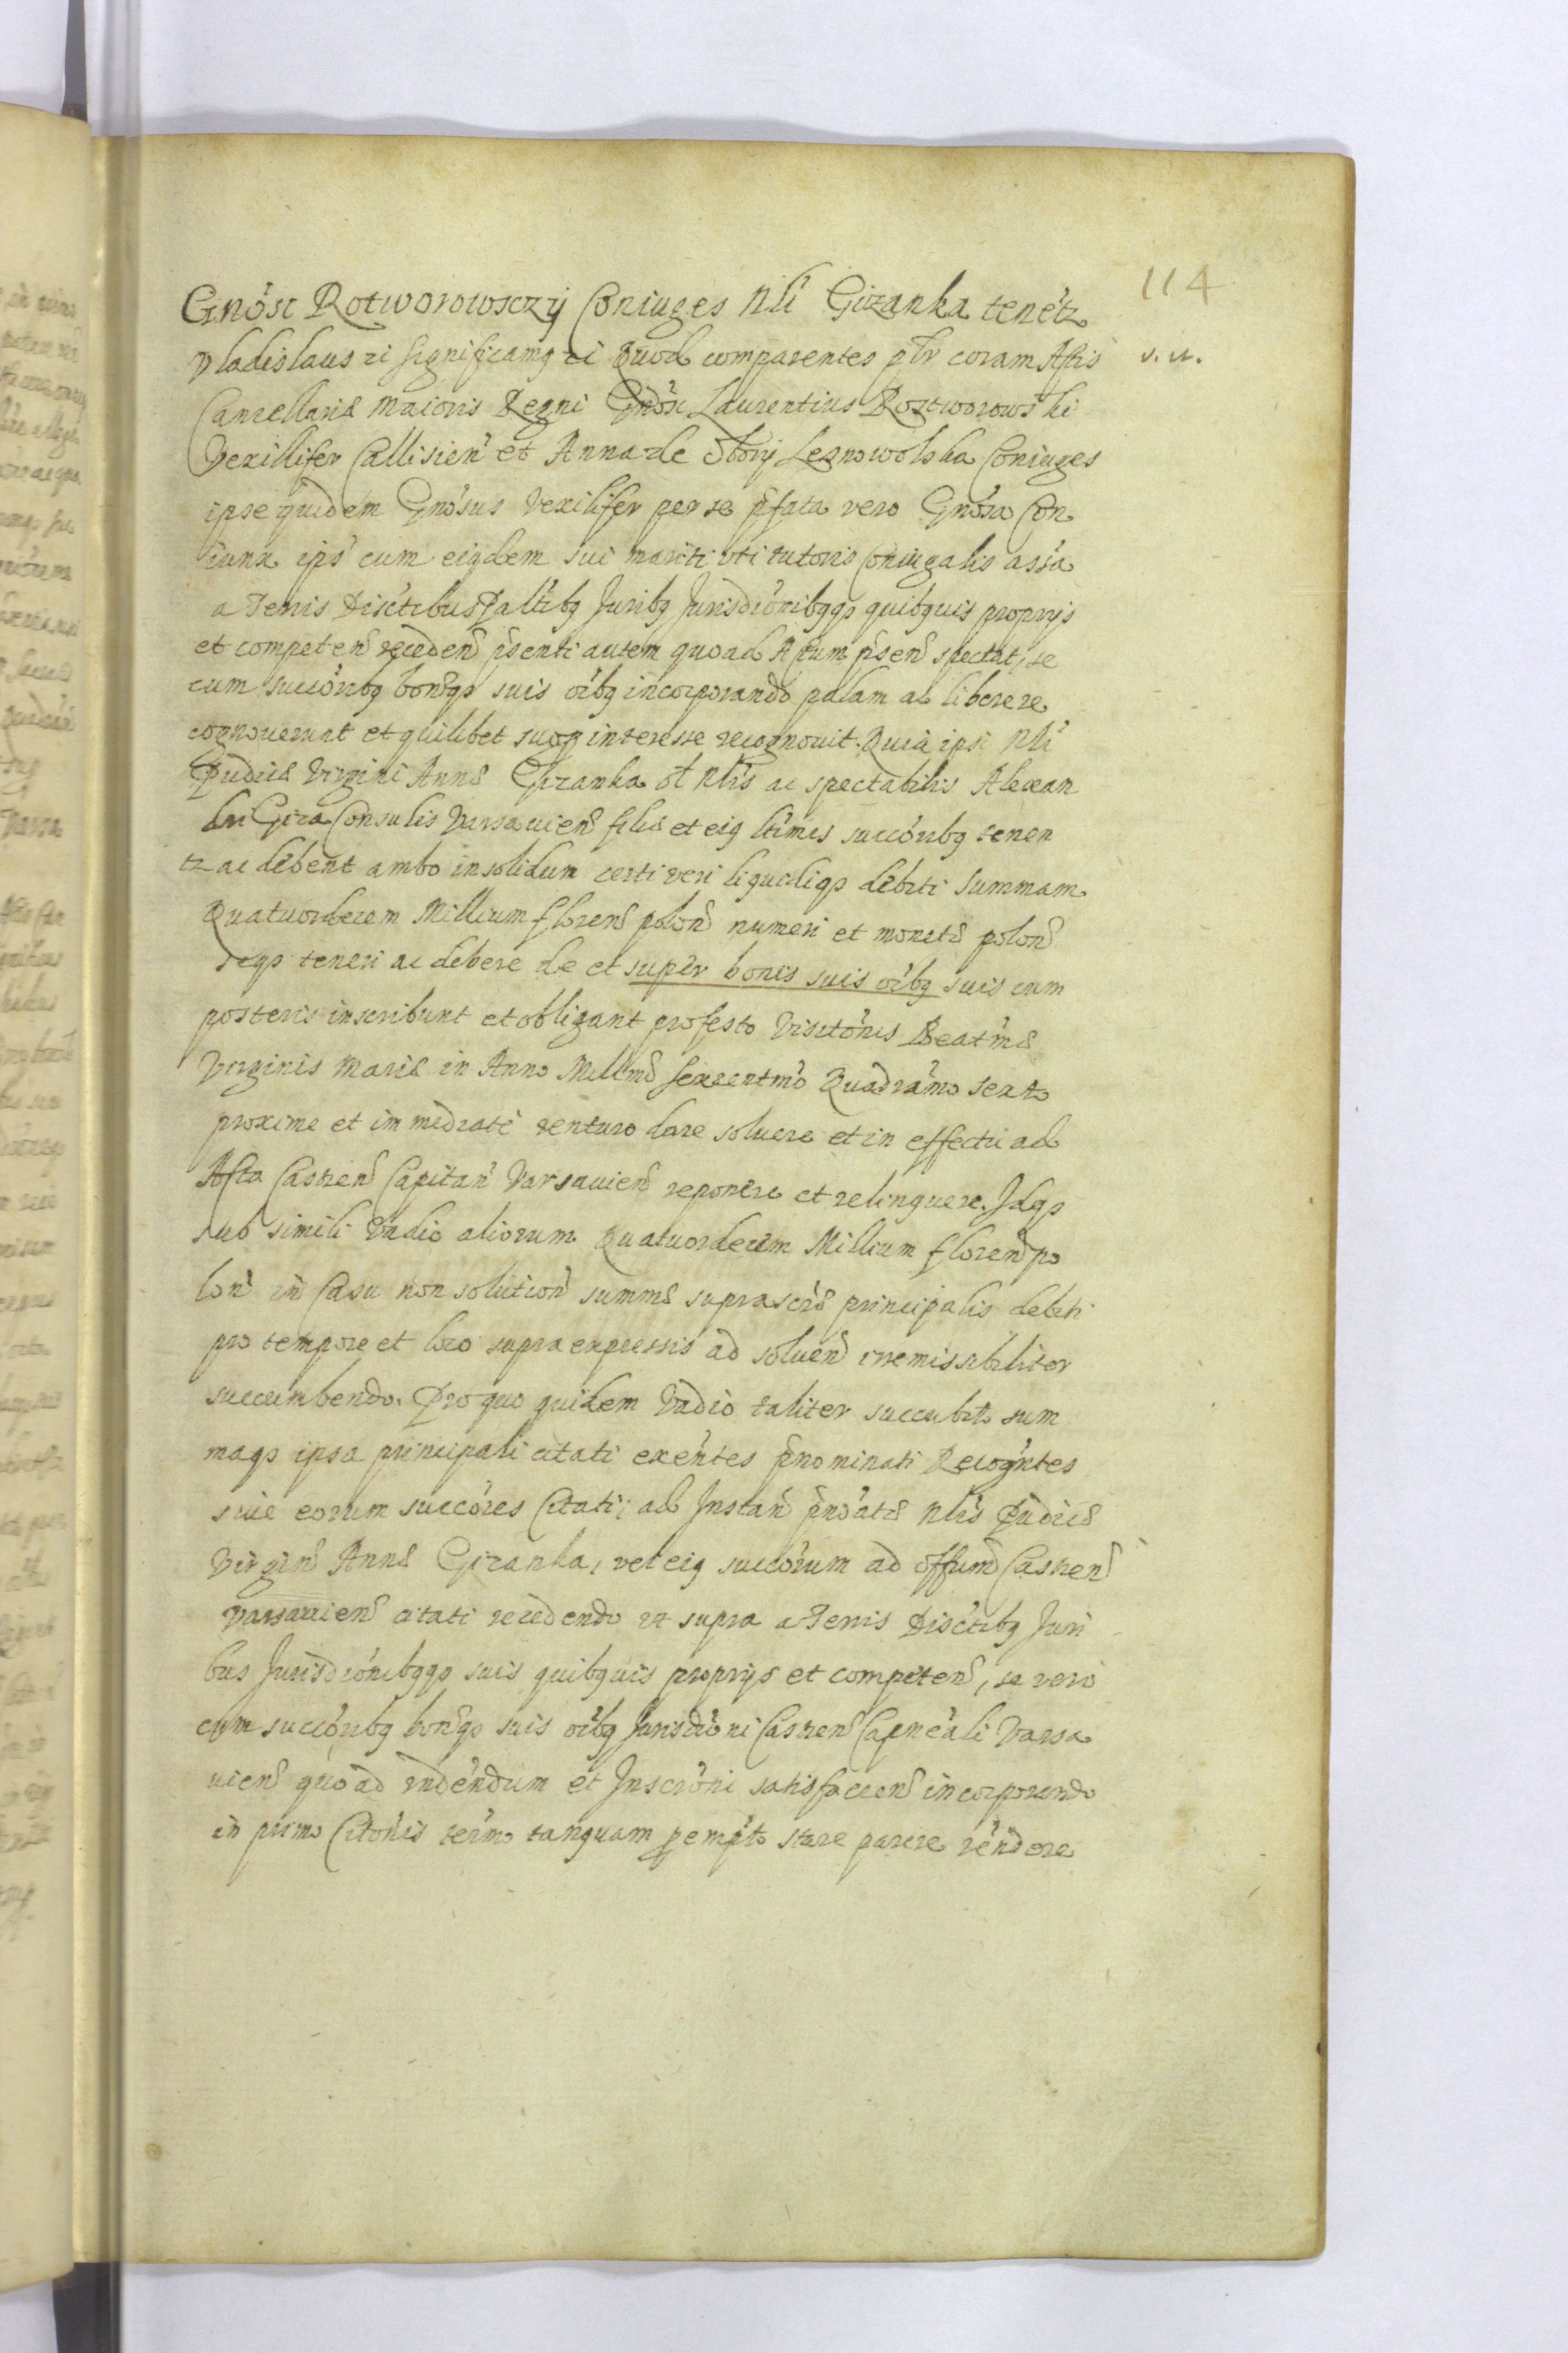 114
Gnosi Rotworowsczy Coniuges Nli Gizanka tenetz
Vladislaus zi Significamq zi Quod comparentes pltr coram Actis
v. u.
Cancellariæ Maioris Regni Gnosi Laurentius Roztworowski
Vexillifer Callisien et Anna de Obory Leznowolska Coniuges
ipse quidem Gnosus Vexilifer per se pfata vero Gnosa Con
iunx ips cum eiqdem sui mariti uti tutoris coniugalis assa
a Terris Disctibus Paltibq Juribq Jurisdionibqqs quibquis proprijs
et competen recedend psenti autem quoad Actum psend spectat, se
cum succoribq bonisqs suis oibq incorporando palam ac libere re
cognouerunt et quilibet suoq interesse recognouit. Quia ipsi Nli
Pudicæ Virgini Annæ Gizanka ol Nlis ac spectabilis Alexan
dri Giza Consulis Varsauien filiæ et eiq ltimis succoribq tenen
tz ac debent ambo insolidum certi veri liquidiqs debiti summam
Quatuordecem Millium floren polon numeri et monetæ polon
seqs teneri ac debere de et super bonis suis oibq suis cum
posteris inscribunt et obligant pro festo Visitonis Beatmæ
Virginis Mariæ in Anno Millmo Sexcentmo Quadramo sexto
proxime et immediate venturo dare soluere et in effectu ad
Acta Castren Capitan Varsauien reponere et relinquere. Idqs
sub simili Vadio aliorum Quatuordecem Millium floren po
lon in Casu non solution summæ suprascræ principalis debiti
pro tempore et loco supra expressis ad soluen irremissibiliter
succumbendo. Pro quo quidem Vadio taliter succubito sum
maqs ipsa principali citati exentes pnominati Recogntes
siue eorum succores Citati, ad Instan pnoatæ Nlis Pudicæ
Virgin Annæ Gizanka, vel eiq succorum ad offum Castren
Varsauien citati recedendo ut supra a Terris Disctibq Juri
bus Jurisdionibqqs suis quibquis proprijs et competen, se vero
cum succoribq bonisqs suis oibq Jurisdioni Castren Capneali Varsa
uien quoad rndendum et Inscroni satisfacien incorporando
in primo Citonis termo tanquam pempto stare parere rendere